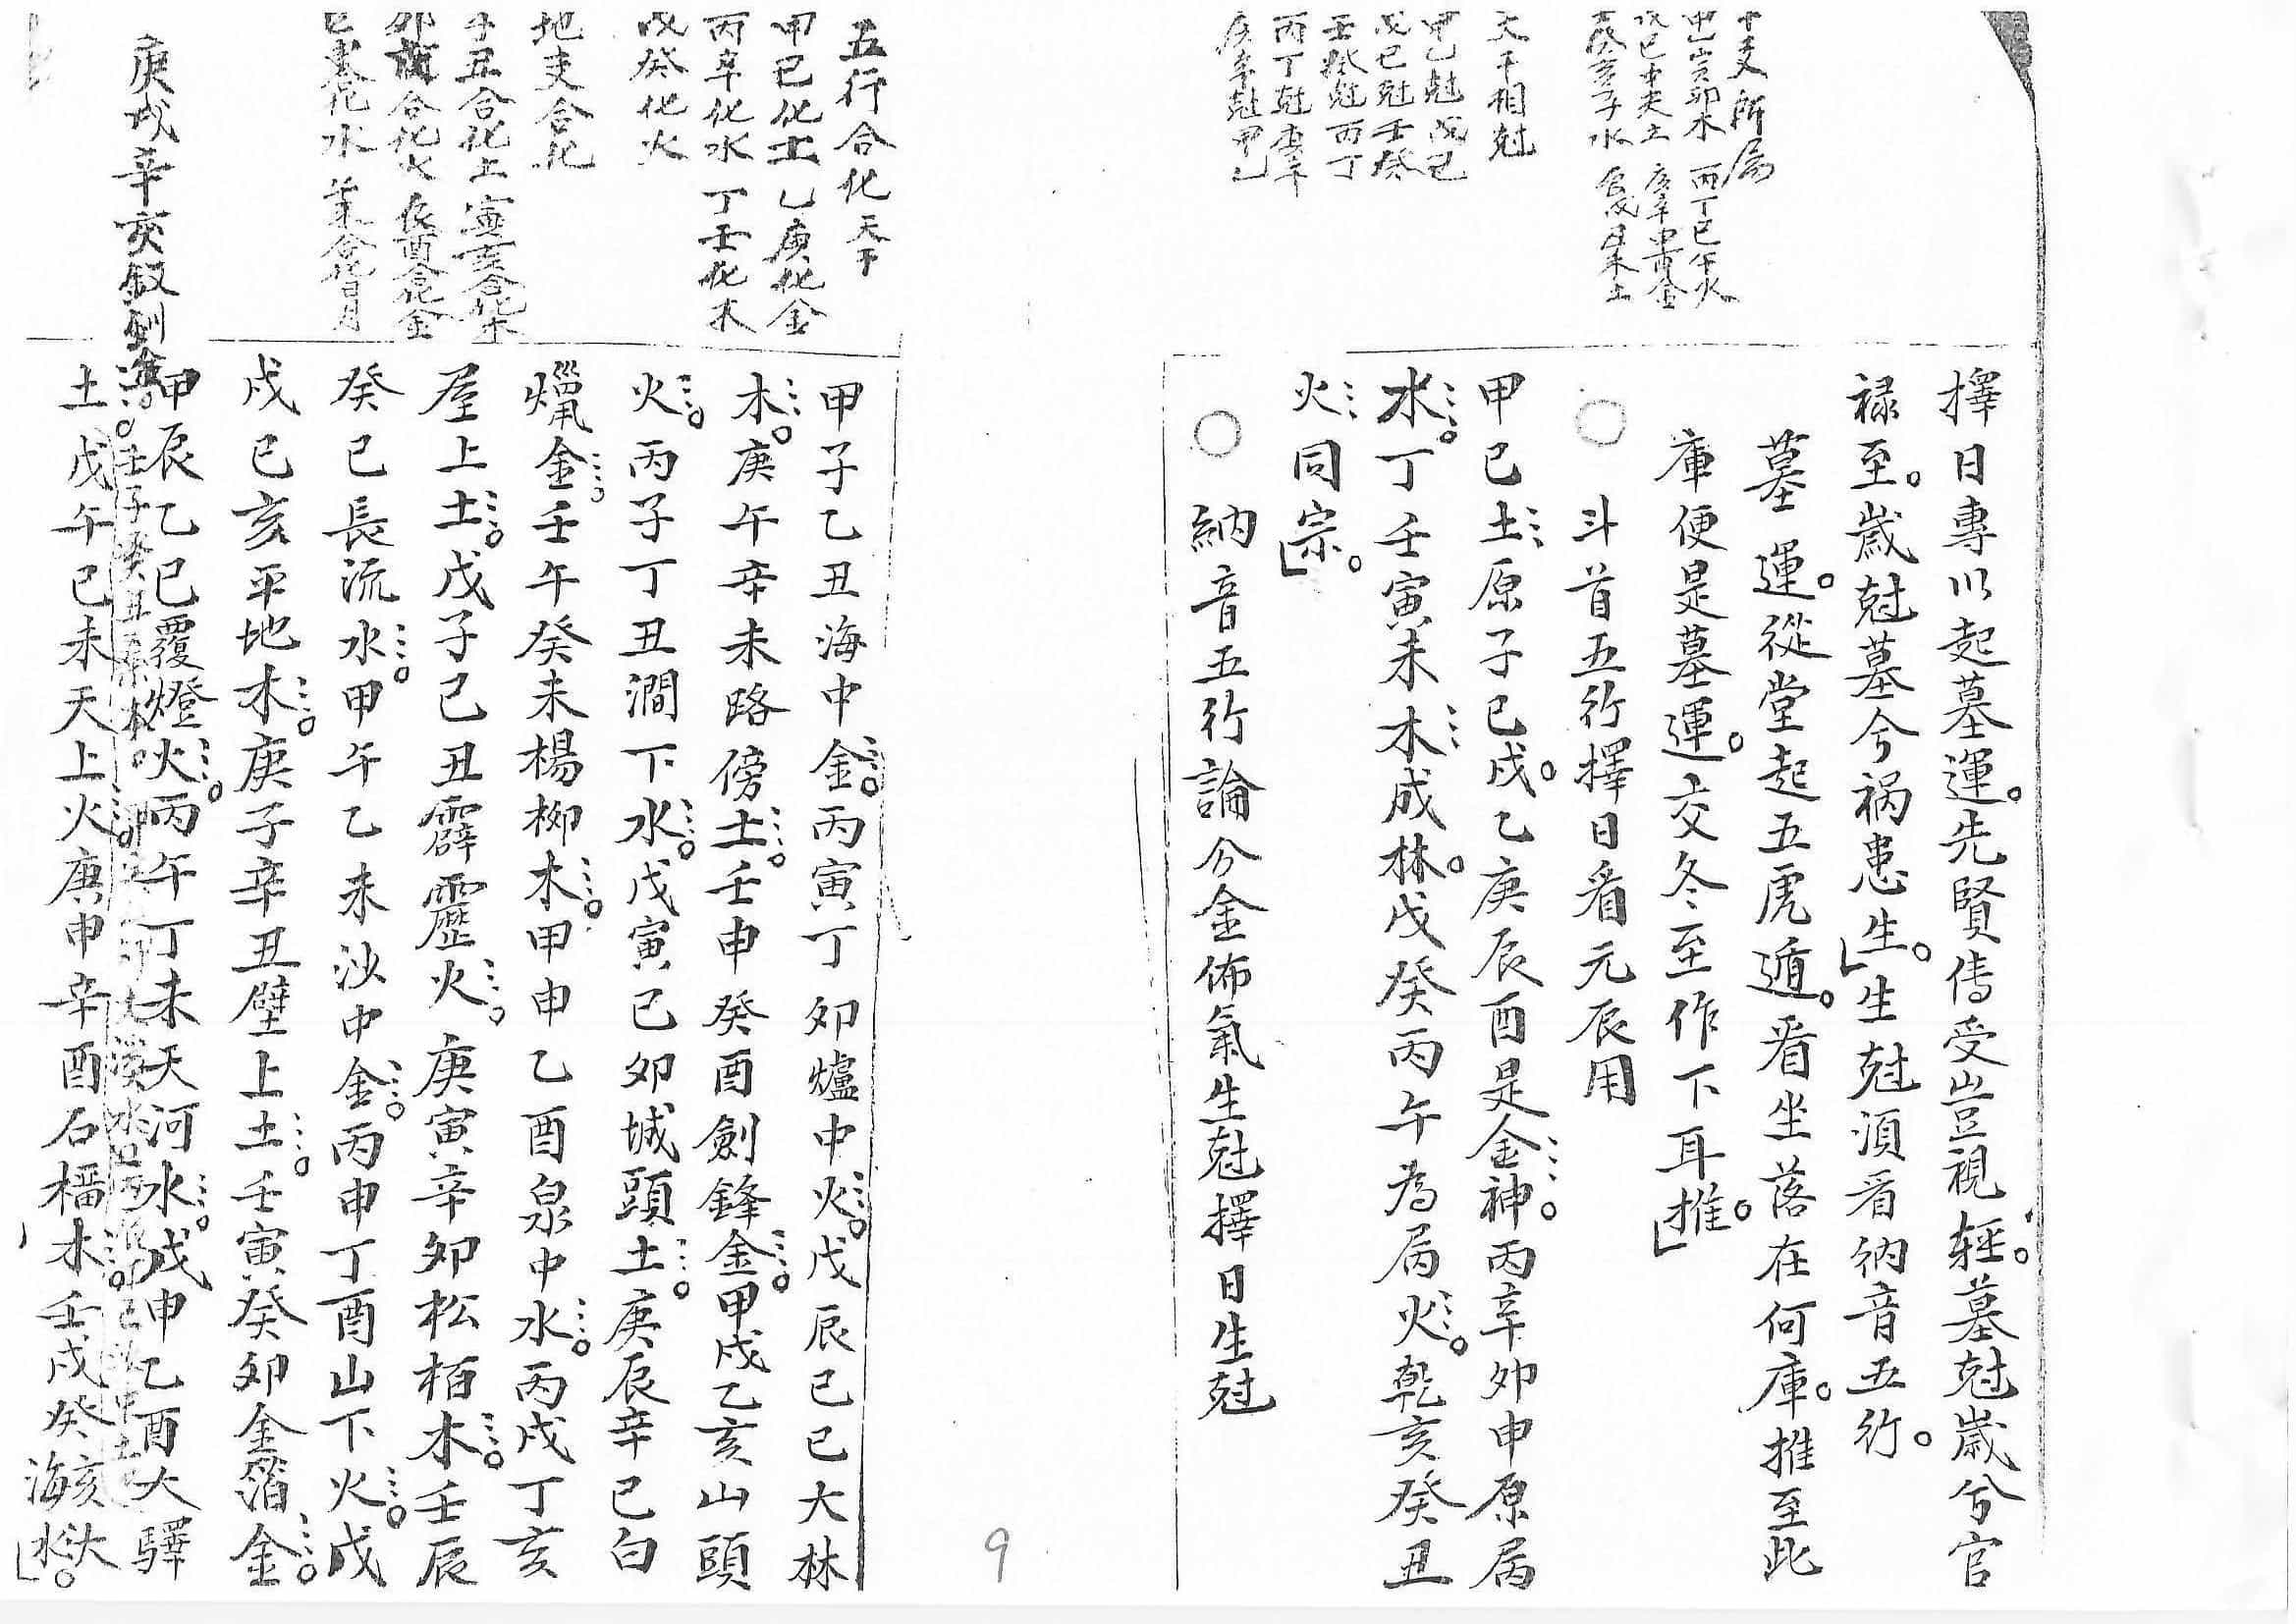 干支所属
甲乙寅卯木 丙丁巳午火
戊己中央土 庚辛申酉金
壬癸亥子水 辰戌丑未土
天干相尅
甲乙尅戊己
戊己尅壬癸
壬癸尅丙丁
丙丁尅庚辛
庚辛尅甲乙
擇日專以起墓運。先賢傳受豈視輕。墓尅歲兮官
禄至。歲尅墓兮禍患生。生生尅須看納音五行。
墓運。從堂起五虎遁。看坐落在何庫。推至此
庫便是墓運。交冬至作下耳推。
○ 斗首五行擇日看元辰用
甲己土原子己戌。乙庚辰酉是金神。丙辛卯申原属
水。丁壬寅未木成林。戊癸丙午為属火。乾亥癸丑
火同宗。
○ 納音五行論分金佈氣生尅擇日生尅
五行合化天干
甲己化土乙庚化金
丙辛化水丁壬化木
戊癸化火
地支合化
子丑合化土寅亥合化木
卯戌合化火辰酉合化金
巳申化水午未合化日月
甲子乙丑海中金。丙寅丁卯爐中火。戊辰己巳大林
木。庚午辛未路傍土。壬申癸酉劍鋒金。甲戌乙亥山頭
火。丙子丁丑澗下水。戊寅己卯城頭土。庚辰辛巳白
爉金。壬午癸未楊柳木。甲申乙酉泉中水。丙戌丁亥
屋上土。戊子己丑霹靂火。庚寅辛卯松栢木。壬辰
癸巳長流水。甲午乙未沙中金。丙申丁酉山下火。戊
戌己亥平地木。庚子辛丑壁上土。壬寅癸卯金箔金。
甲辰乙巳覆燈火。丙午丁未天河水。戊申乙酉大驛
庚戌辛亥釵釧金。壬子癸丑桑木
土。戊午己未天上火。庚申辛酉石榴木。壬戌癸亥大海水。
9